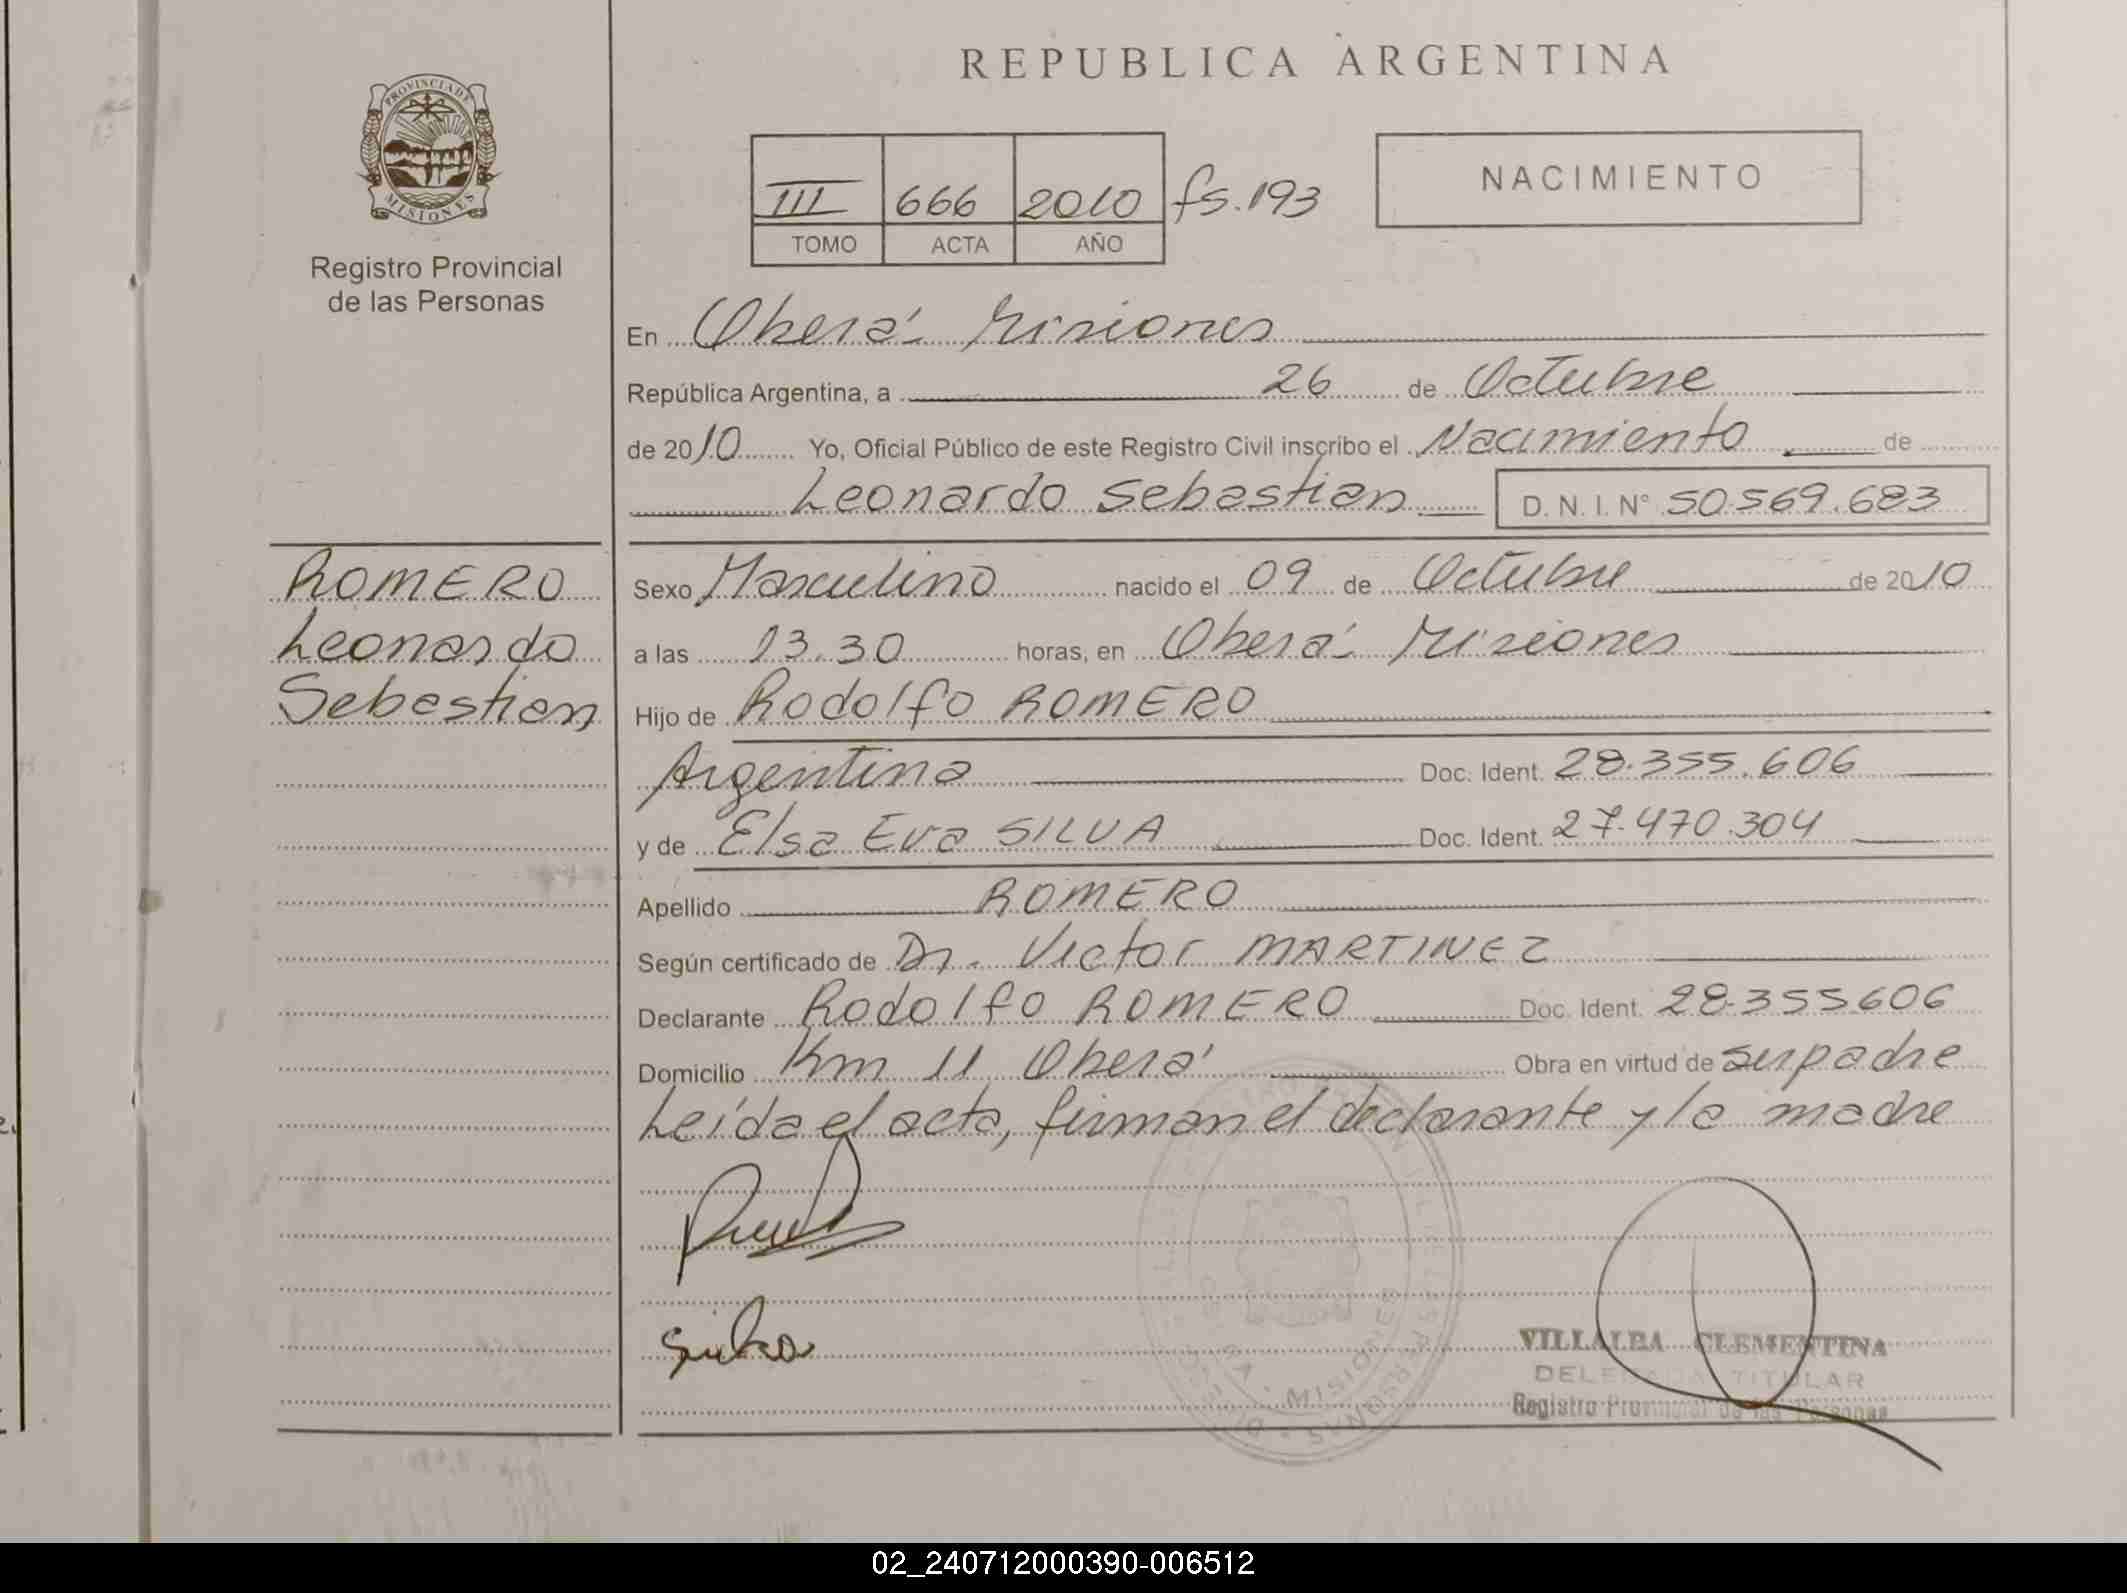 REPUBLICA ARGENTINA
PROVINCIA DE MISIONES
Registro Provincial
de las Personas
III 666 2010 fs. 193
TOMO ACTA AÑO
NACIMIENTO
En Oberá - Misiones
República Argentina, a 26 de Octubre
de 2010 Yo, Oficial Público de este Registro Civil inscribo el Nacimiento de
Leonardo Sebastian D.N.I. N° 50.569.683
ROMERO
Leonardo
Sebastian
Sexo Masculino nacido el 09 de Octubre de 2010
a las 13.30 horas, en Oberá - Misiones
Hijo de Rodolfo ROMERO
Argentina Doc. Ident. 28.355.606
y de Elsa Eva SILVA Doc. Ident. 27.470.304
Apellido ROMERO
Según certificado de Dr. Victor MARTINEZ
Declarante Rodolfo ROMERO Doc. Ident. 28.355.606
Domicilio Km 11 Oberá Obra en virtud de ser padre
Leída el acta, firman el declarante y la madre
Silva
VILLALBA CLEMENTINA
DELEGADA TITULAR
Registro Provincial de las Personas
02_240712000390-006512